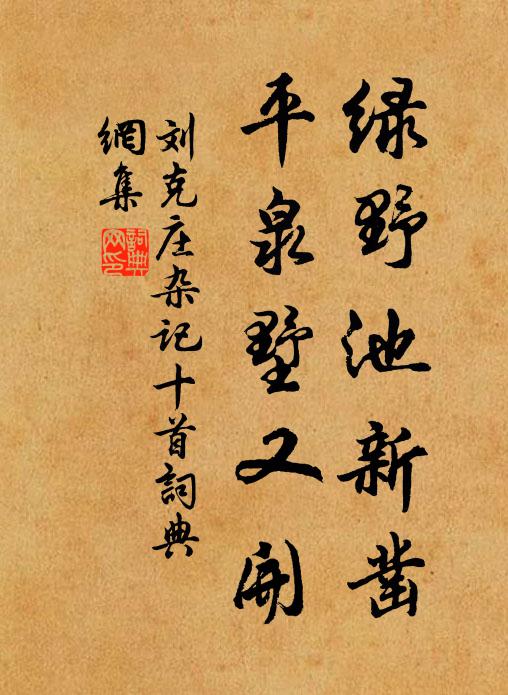 绿野池新凿
平泉墅又開
刘克庄杂记十首詞典
網集
詞典網印